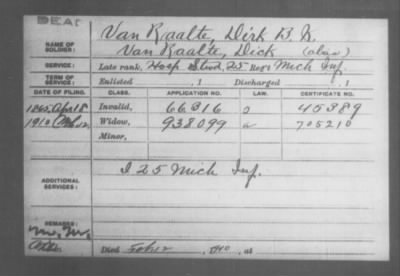 DEAD
Van Raalte, Dirk B. K.
NAME OF SOLDIER: Van Raalte, Dick (alias)
SERVICE: Late rank, Hosp Stwd, 25 Reg't Mich Inf.
TERM OF SERVICE: Enlisted , 1 Discharged , 1
DATE OF FILING. CLASS. APPLICATION NO. LAW. CERTIFICATE NO.
1865, April 8 Invalid, 66316 45389
1910 Widow, 938099 705210
Minor,
ADDITIONAL SERVICES: I 25 Mich Inf.
REMARKS:
Died Feb 12, 1910, at